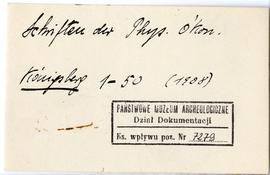 Schriften der Phys. Ökon.
Königsberg 1-50 (1908)
PAŃSTWOWE MUZEUM ARCHEOLOGICZNE
Dział Dokumentacji
Ks. wpływu poz. Nr 7279